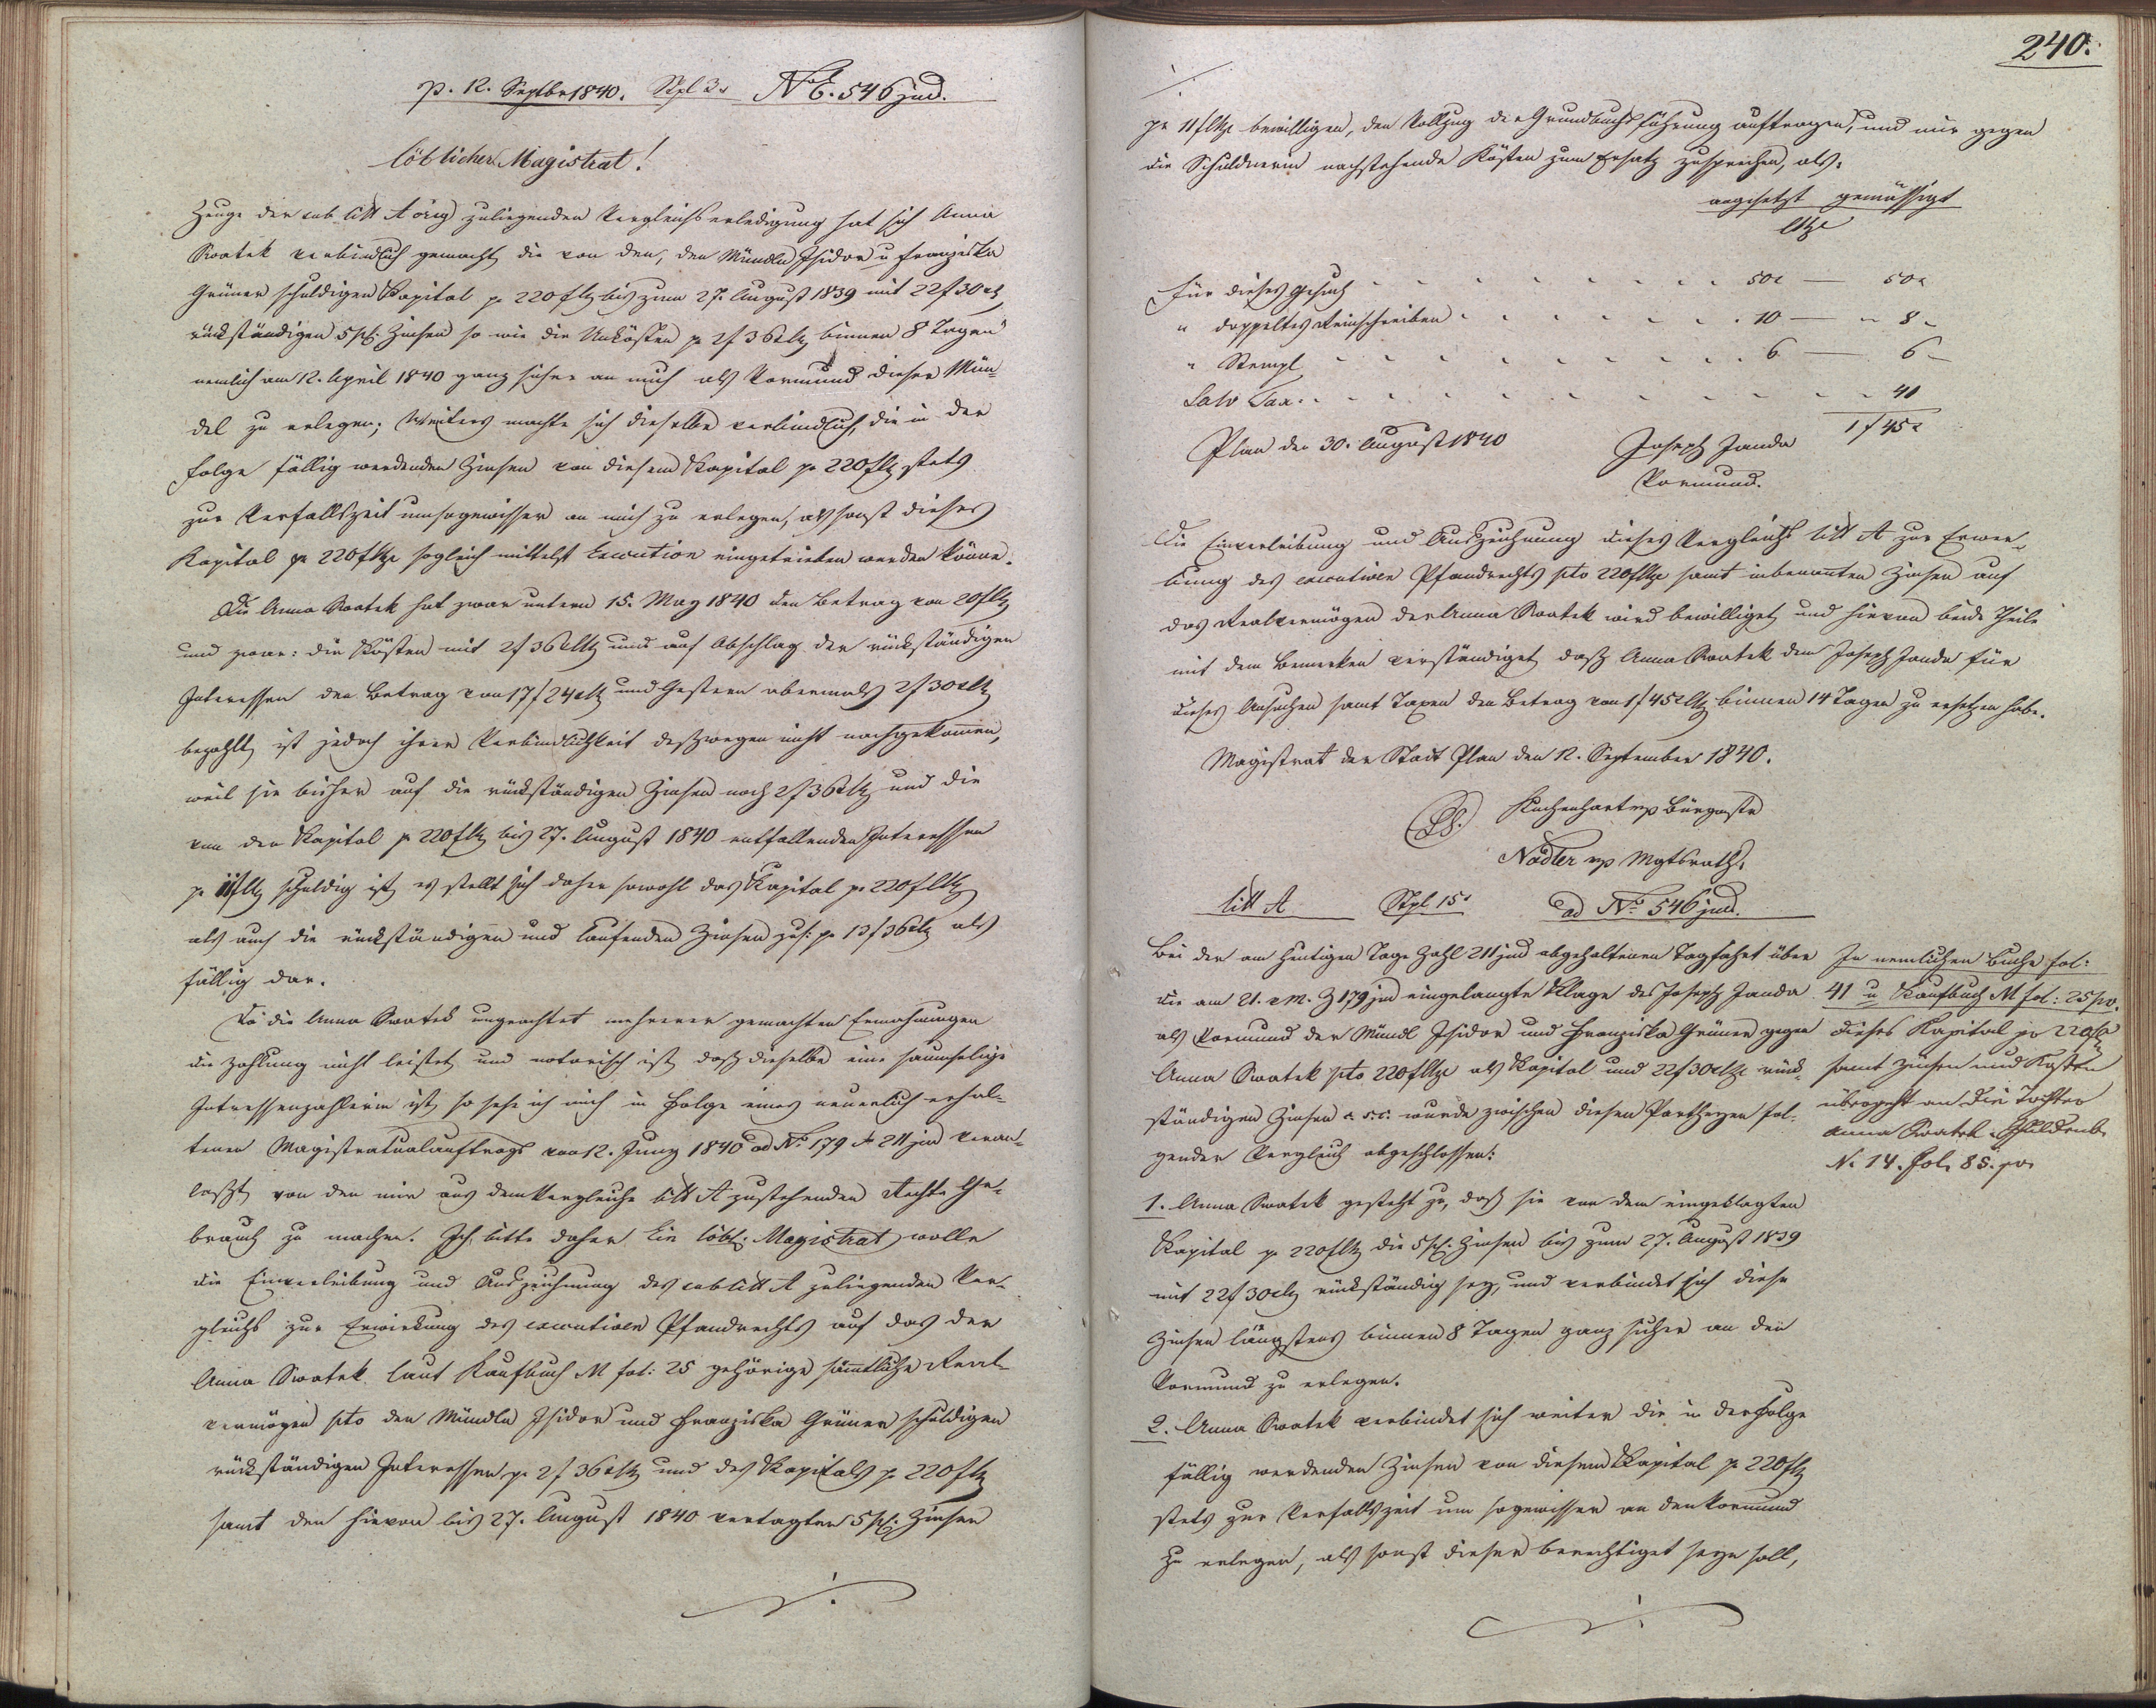 p. 12. Septbr 1840. Stpl 3x No E. 546 jud.
Löblicher Magistrat!
Zeuge der sub litt A orig zuliegenden Vergleichserledigung hat sich Anna
Swatek verbindlich gemacht die von den, den Mündln Isidor u Franziska
Grüner schuldigen Kapital pr 220 f CMz bis zum 27. August 1839 mit 22 f 30 x Mz
rückständigen 5 pC: Zinsen so wie die Unkösten pr 2 f 36 x CMz binnen 8 Tagen
nemlich am 12. April 1840 ganz sicher an mich als Vormund dieser Mün-
del zu erlegen; Weiters machte sich dieselbe verbindlich, die in der
Folge fällig werdenden Zinsen von diesem Kapital pr 220 f CMz stets
zur Verfallszeit umsogewisser an mich zu erlegen, als sonst dieses
Kapital pr 220 f CMze sogleich mittelst Execution eingetrieben werden könne.
Die Anna Swatek hat zwar unterm 15. May 1840 den Betrag von 20 f CMz
und zwar: die Kösten mit 2 f 36 x CMz und auf Abschlag der rückständigen
Interessen den Betrag von 17 f 24 x CMz und Gestern abermals 2 f 30 x CMz
bezahlt, ist jedoch ihrer Verbindlichkeit deßwegen nicht nachgekommen,
weil sie bisher auf die rückständigen Zinsen noch 2 f 36 x CMz und die
von den Kapital pr 220 f CMz bis 27. August 1840 entfallenden Interessen
pr 11 f CMz schuldig ist, es stellt sich daher sowohl das Kapital pr 220 f CMz
als auch die rückständigen und laufenden Zinsen zus: pr 13 f 36 x CMz als
fällig dar.
Da die Anna Swatek ungeachtet mehrerer gemachten Ermahnungen
die Zahlung nicht leistet, und notorisch ist, daß dieselbe eine saumselige
Intressenzahlerin ist, so sehe ich mich in Folge eines neuerlich erhal-
tenen Magistratualauftrags vom 12. Juny 1840 ad No 179 & 211 jud veran-
laßt, von den mir aus dem Vergleiche litt A zustehenden Rechte Ge-
brauch zu machen. Ich bitte daher Ein löbl: Magistrat wolle
die Einverleibung und Auszeichnung des sub litt A zuliegenden Ver-
gleichs zur Erwirkung des executiven Pfandrechts auf das der
Anna Swatek laut Kaufbuch M fol: 25 gehörige sämtliche Real-
vermögen pto den Mündln Isidor und Franziska Grüner schuldigen
rückständigen Interessen pr 2 f 36 x CMz und des Kapitals pr 220 f CMz
samt den hievon bis 27. August 1840 vertagten 5 pC: Zinsen
./.
240.
./.
pr 11 f CMze bewilligen, den Vollzug der Grundbuchsführung auftragen, und mir gegen
die Schuldnerin nachstehende Kösten zum Ersatz zusprechen, als:
angesetzt gemässigt
CMze
Für dieses Gesuch 50 x — 50 x
" doppeltes Reinschreiben 10 — " 8 "
" Stempl 6 — 6 "
Salv Tax 41
1 f 45 x
Plan den 30. August 1840 Joseph Janda
Vormund.
Die Einverleibung und Auszeichnung dieses Vergleichs litt A zur Erwer-
bung des executiven Pfandrechts pto 220 f CMze samt inbenannten Zinsen auf
das Realvermögen der Anna Swatek wird bewilliget und hievon beide Theile
mit dem Bemerken verständiget, daß Anna Swatek dem Joseph Janda für
dieses Ansuchen samt Taxen den Betrag von 1 f 45 x CMz binnen 14 Tagen zu ersetzen habe.
Magistrat der Stadt Plan den 12. September 1840.
LS. mp Bürgmstr
Nadler mp Mgtsrath.
litt A Stpl 15x ad No 546 jud.
Bei der am heutigen Tage Zahl 211 jud abgehaltenen Tagfahrt über
die am 21. v M. Z 179 jud eingelangte Klage des Joseph Janda
als Vormund der Mündl Isidor und Franziska Grüner gegen
Anna Swatek pto 220 f CMze als Kapital und 22 f 30 x CMze rück-
ständigen Zinsen c. s. c. wurde zwischen diesen Partheyen fol-
gender Vergleich abgeschlossen:
In nemlichen Buche fol:
41 u Kaufbuch M fol: 25 pv.
dieses Kapital pr 220 f CMz
samt Zinsen und Kosten
übergeht an die Tochter
Anna Swatek Schuldenb.
N. 14. Fol. 85. pv
1. Anna Swatek gesteht zu, daß sie von dem eingeklagten
Kapital pr 220 f CMz die 5 pC: Zinsen bis zum 27. August 1839
mit 22 f 30 x CMz rückständig sey, und verbindet sich diese
Zinsen längstens binnen 8 Tagen ganz sicher an den
Vormund zu erlegen.
2. Anna Swatek verbindet sich weiter die in der Folge
fällig werdenden Zinsen von diesem Kapital pr 220 f CMz
stets zur Verfallszeit um so gewisser an den Vormund
zu erlegen, als sonst dieser berechtiget seyn soll,
./.